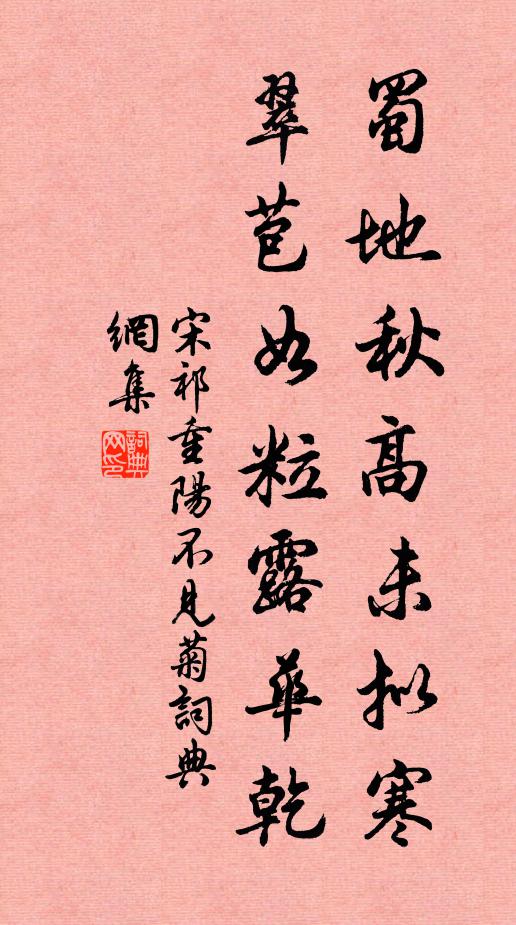 蜀地秋高未拟寒
翠苞如粒露華乾
宋祁重陽不見菊詞典
網集
詞典網印